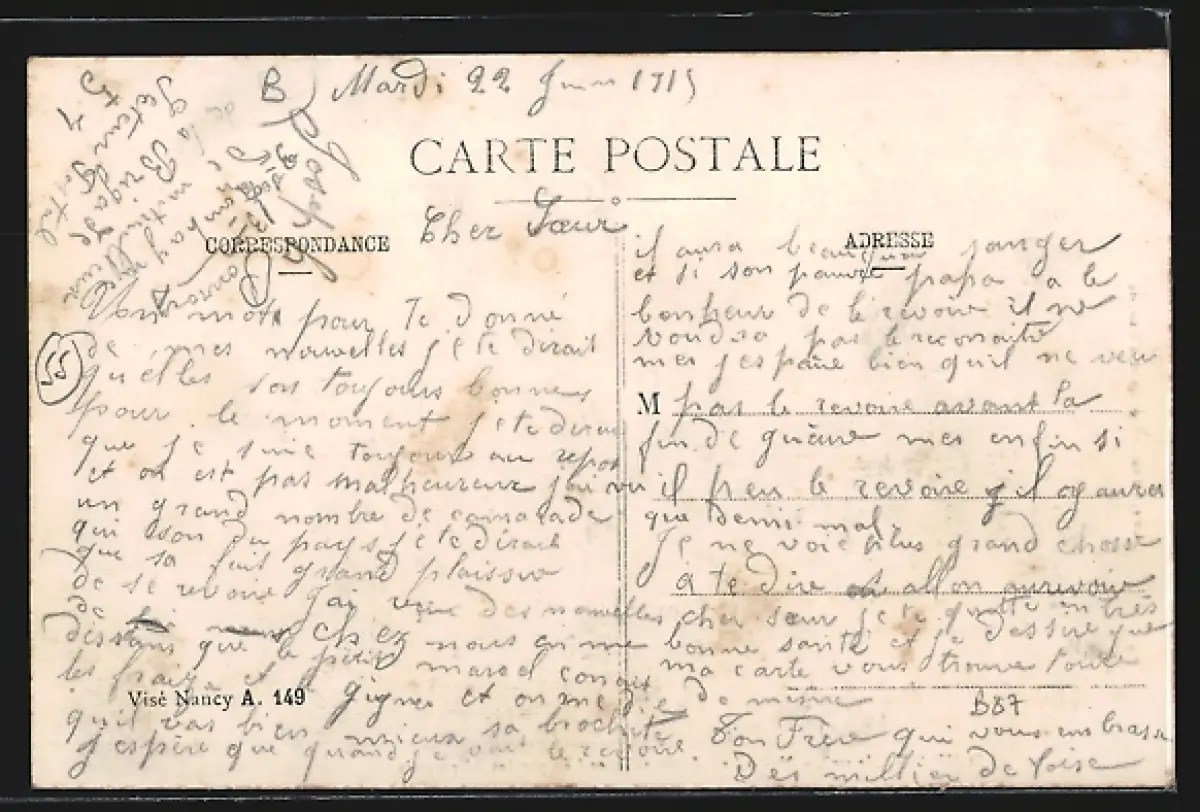 B Mardi 22 Juin 1915
CARTE POSTALE
Joseph
de la Brigade
CORRESPONDANCE
ADRESSE
Cher Sœur
mots pour te donné
de mes nouvelles je te dirait
qu'elles son toujours bonnes
pour le moment je te dirai
que je suie toujour au repos
et on est pas malheureux j'ai vu
un grand nombre de camarade
qui son du pays je te dirait
que sa fait grand plaisir
de se revoire j'ai reçue des nouvelles
de chez nous en me
dissans que le petit marcel
les fraize et gignes et on me die
qu'il vas bien mieux sa
j'espère que quand je vait le revoire
55
il aura beaucoup janger
et si son pauvre papa a le
bonheur de le revoire il ne
voudra pas le reconaitre
mes j'espaire bien quil ne veu
M pas le revoire avant la
fin de guaire mes enfin si
il peu le revoire il y aura
que demi mal.
Je ne voie plus grand chosse
a te dire allon aurevoire
cher sœur je te quitte en très
bonne santé et je dessire que
ma carte vous trouve toute
de même
Ton Frere qui vous embrasse
Des millier de foise
Visé Nancy A. 149
B87